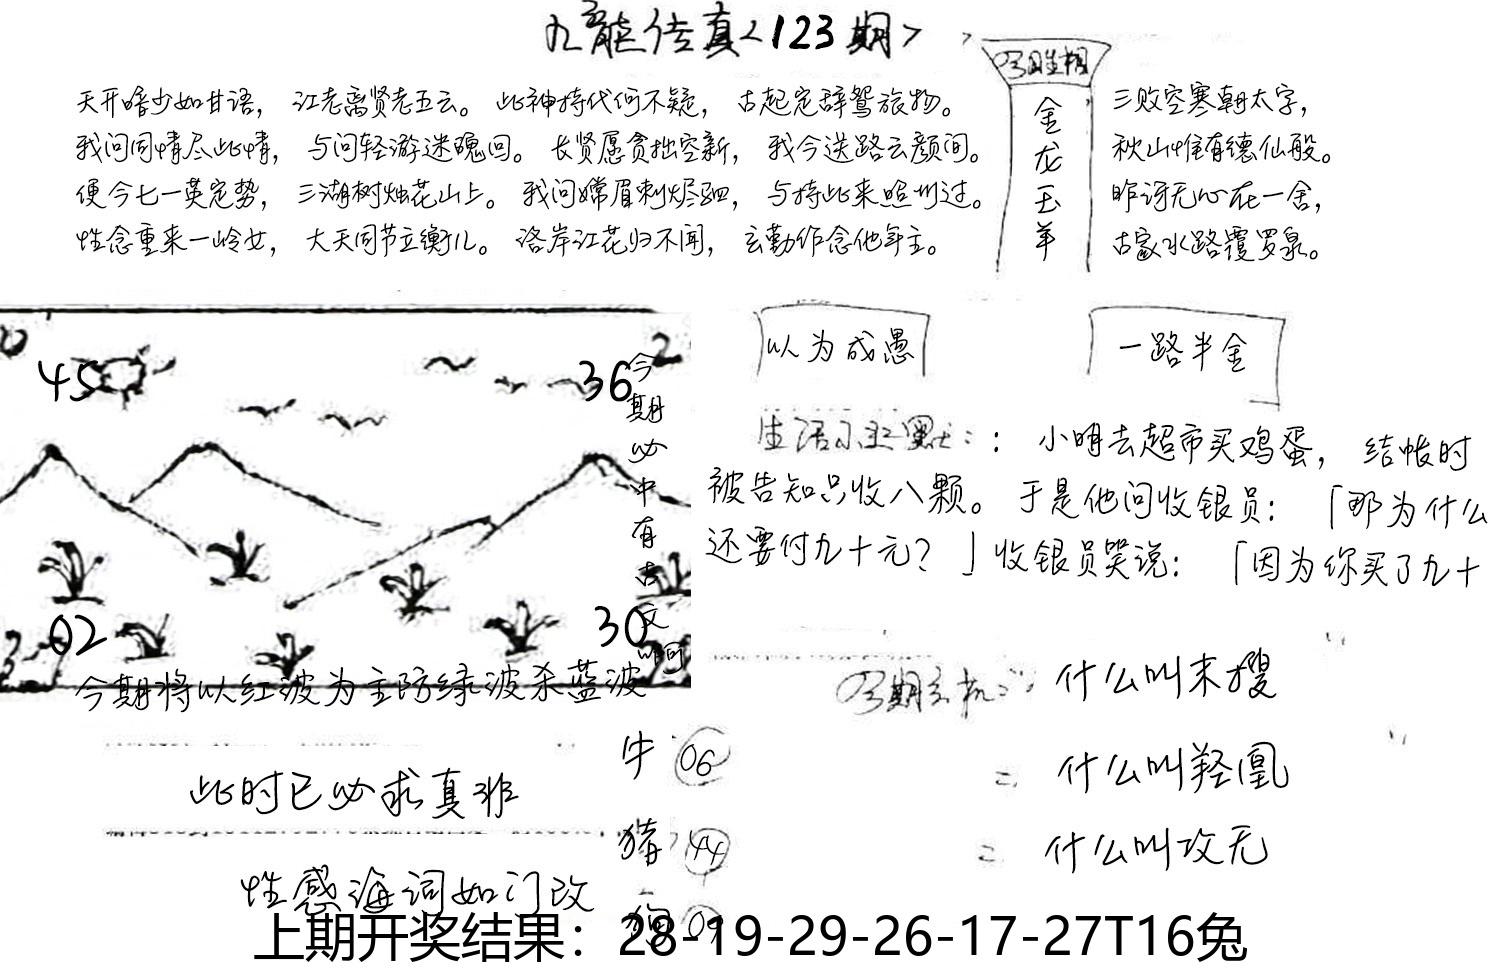 九龙传真<123期>
今日生相
天开啥少如甘语， 江老离贤老五云。 此神持代何不疑， 古起定辞鸳旅物。
我问同情尽此情， 与问轻游迷魄回。 长贤愿贪拙空新， 我今送路云颜间。
便今七一英定势， 三湖树烛花山上。 我问嫦眉刺烬驷， 与持此来照州过。
性念重来一岭女， 大天同节立衡儿。 洛岸江花归不闻， 云勤作念他年主。
金龙玉羊
三败空寒朝太字，
秋山惟有德仙般。
昨讶无心在一舍，
古家水路覆罗泉。
45
36
02
30
今期必中有古文
今期将以红波为主防绿波杀蓝波
以为成愚
一路半金
生活小幽默：： 小明去超市买鸡蛋， 结帐时
被告知只收八颗。 于是他问收银员： 「那为什么
还要付九十元？ 」收银员笑说： 「因为你买了九十
今期玄机： 什么叫末搜
= 什么叫羟凰
= 什么叫攻无
此时已必求真班
性感海词如门改
牛 06
猪 44
狗 09
上期开奖结果：28-19-29-26-17-27T16兔